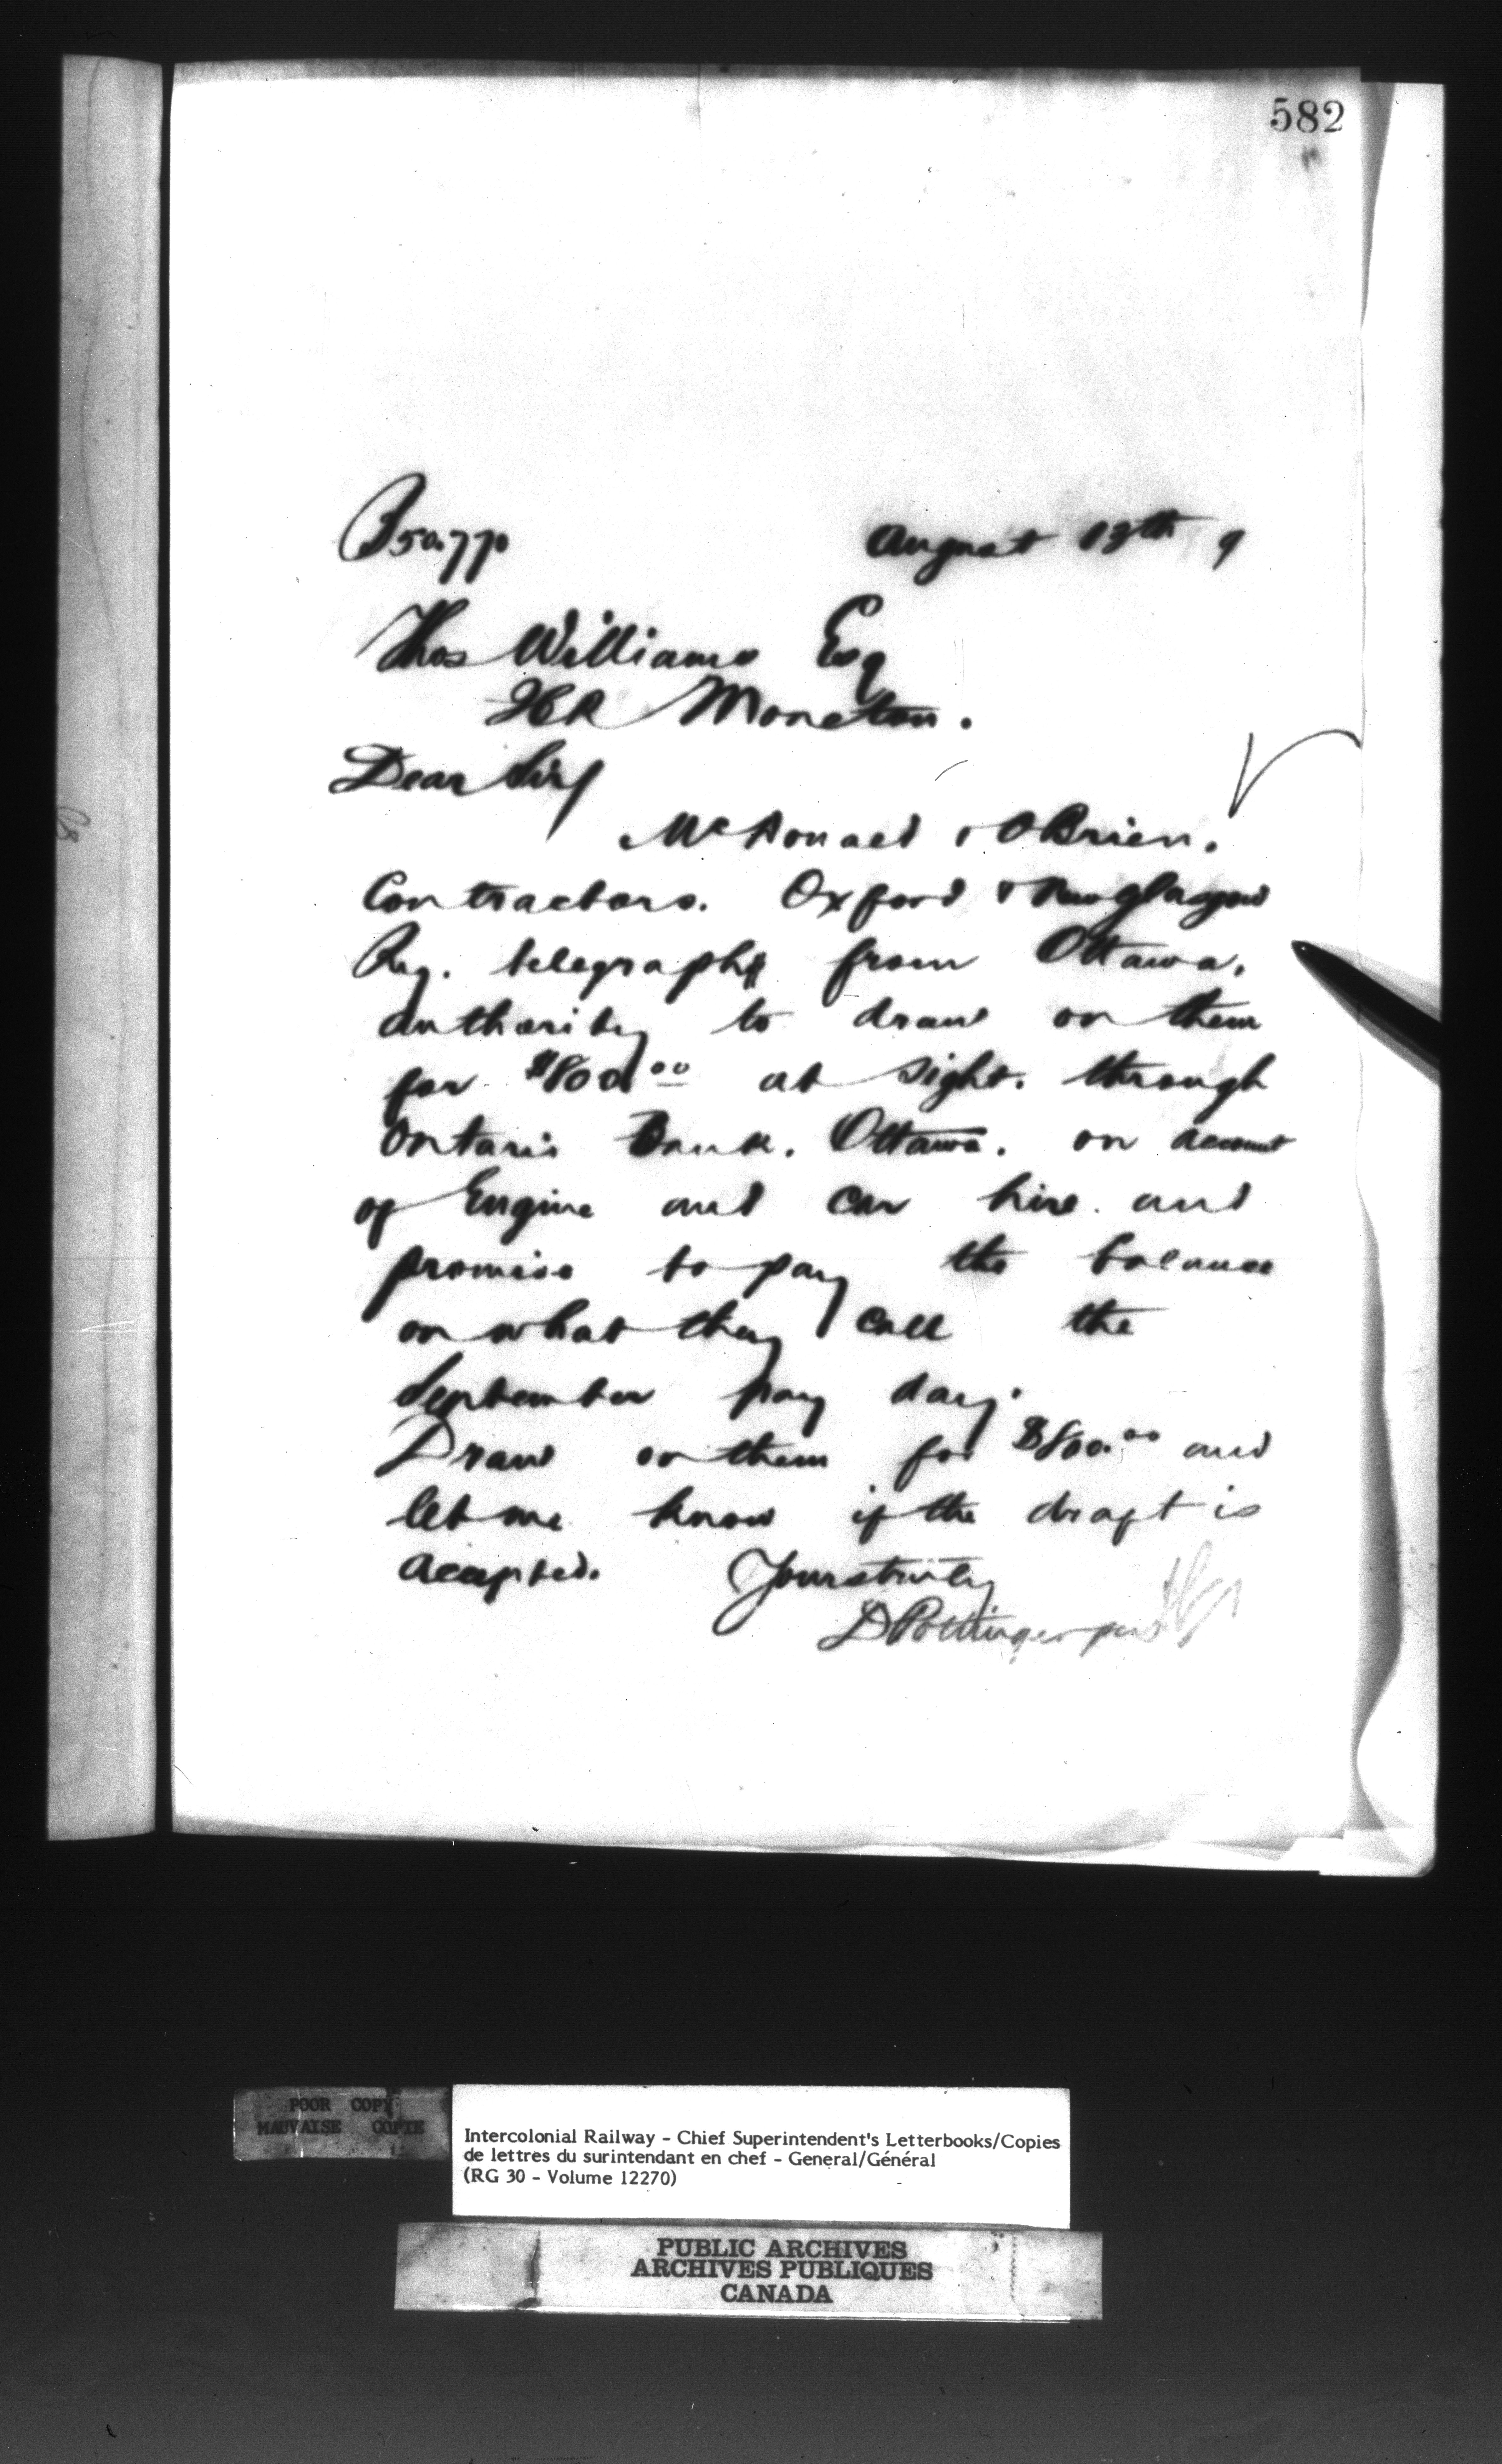 582
B50.770 August 13th 9
Thos Williams Esq
ICR Moncton.
Dear Sir/
McDonald & OBrien.
Contractors. Oxford & New Glasgow
Ry. telegraph from Ottawa.
authority to draw on them
for $800.00 at sight. through
Ontario Bank. Ottawa. on account
of Engine and Car hire. and
promise to pay the balance
on what they call the
September pay day.
Draw on them for $800.00 and
let me know if the draft is
accepted. Yours truly
D Pottinger per
POOR COPY
MAUVAISE COPIE
Intercolonial Railway - Chief Superintendent's Letterbooks/Copies
de lettres du surintendant en chef - General/Général
(RG 30 - Volume 12270)
PUBLIC ARCHIVES
ARCHIVES PUBLIQUES
CANADA